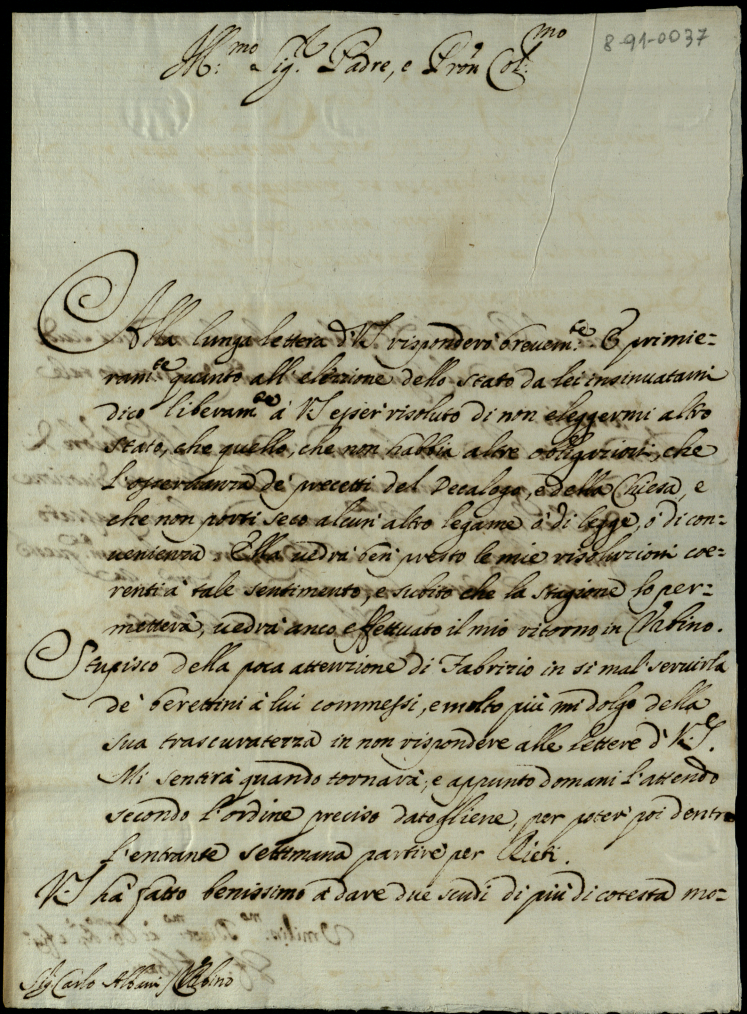 8-91-0037
Ill.mo Sig.r Padre, e Pron Col.mo
Alla lunga lettera di V.S. risponderò brevem.te E primie=
ram.te quanto all'elezzione dello stato da lei insinuatami
dico liberam.te à V.S. esser risoluto di non eleggermi altro
stato, che quello, che non habbia altre obligazioni, che
l'osservanza de' precetti del Decalogo, e della Chiesa, e
che non porti seco alcun' altro legame ò di legge, ò di con=
uenienza. Ella uedrà ben' presto le mie risoluzioni coe=
renti à tale sentimento, e subito che la stagione lo per=
metterà, uedrà anco effettuato il mio ritorno in Urbino.
Stupisco della poca attenzione di Fabrizio in si mal' seruirla
de' berettini à lui commessi, e molto più mi dolgo della
sua trascuratezza in non rispondere alle lettere di V.S.
Mi sentirà quando tornarà, e appunto domani l'attendo
secondo l'ordine preciso datogliene, per poter' poi dentro
l'entrante settimana partire per Rieti.
V.S. hà fatto benissimo à dare due scudi di più di cotesta mo=
Sig. Carlo Albani Urbino